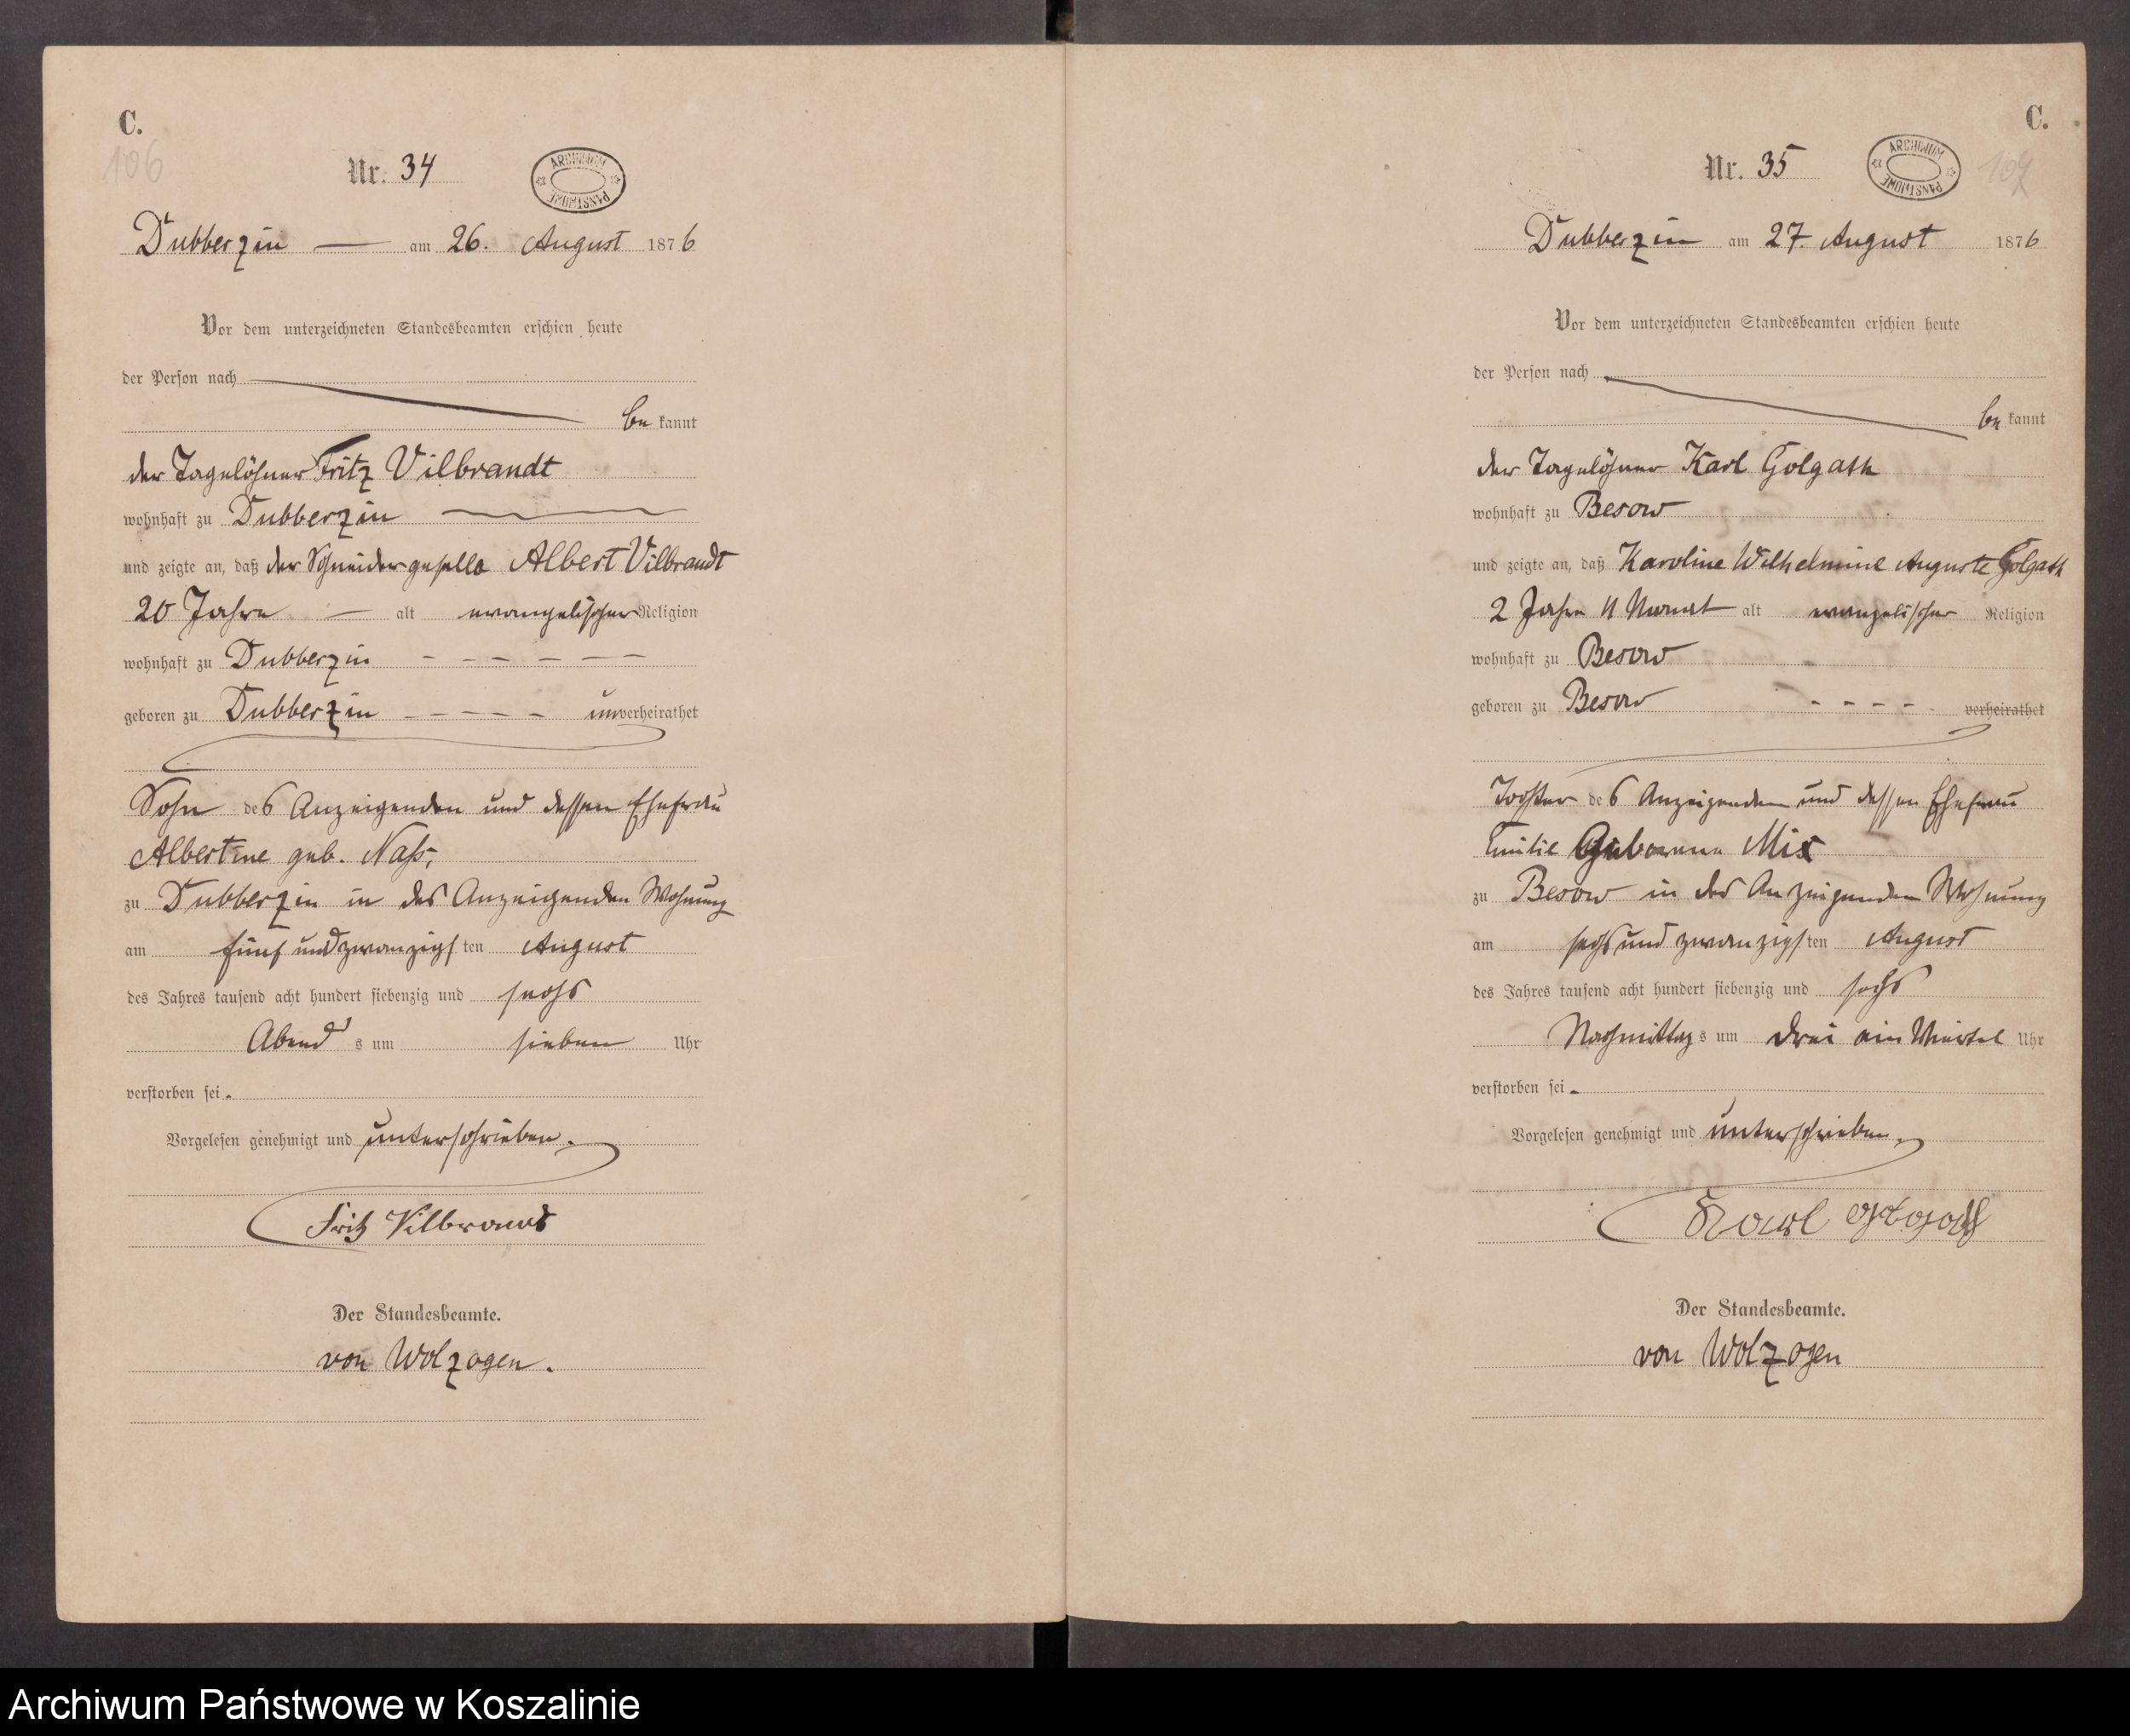 C.
106
Nr. 34
ARCHIWUM PAŃSTWOWE
Dubberzin — am 26. August 1876
Vor dem unterzeichneten Standesbeamten erschien heute
der Person nach
be kannt
der Tagelöhner Fritz Vilbrandt
wohnhaft zu Dubberzin
und zeigte an, daß der Schneidergeselle Albert Vilbrandt
20 Jahre — alt evangelischer Religion
wohnhaft zu Dubberzin - - - - - -
geboren zu Dubberzin - - - - - unverheirathet
Sohn des Anzeigenden und dessen Ehefrau
Albertine geb. Naß,
zu Dubberzin in des Anzeigenden Wohnung
am fünf und zwanzigsten August
des Jahres tausend acht hundert siebenzig und sechs
Abend s um sieben Uhr
verstorben sei.
Vorgelesen genehmigt und unterschrieben.
Fritz Vilbrandt
Der Standesbeamte.
von Wolzogen.
C.
107
Nr. 35
ARCHIWUM PAŃSTWOWE
Dubberzin am 27. August 1876
Vor dem unterzeichneten Standesbeamten erschien heute
der Person nach
be kannt
der Tagelöhner Karl Golgath
wohnhaft zu Besow
und zeigte an, daß Karoline Wilhelmine Auguste Golgath
2 Jahre 11 Monat alt evangelischer Religion
wohnhaft zu Besow
geboren zu Besow - - - - - verheirathet
Tochter des Anzeigenden und dessen Ehefrau
Emilie Geborene Mix
zu Besow in des Anzeigenden Wohnung
am sechs und zwanzigsten August
des Jahres tausend acht hundert siebenzig und sechs
Nachmittag s um drei ein Viertel Uhr
verstorben sei.
Vorgelesen genehmigt und unterschrieben.
Karl
Der Standesbeamte.
von Wolzogen
Archiwum Państwowe w Koszalinie